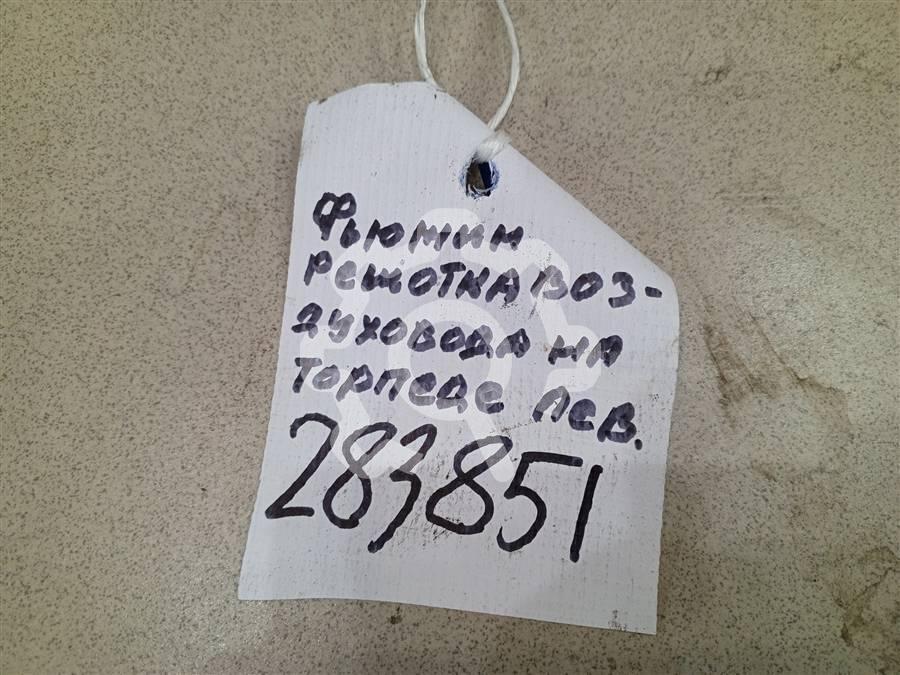 Фьюмин
решотка воз-
духовода на
торпеде лев.
283851